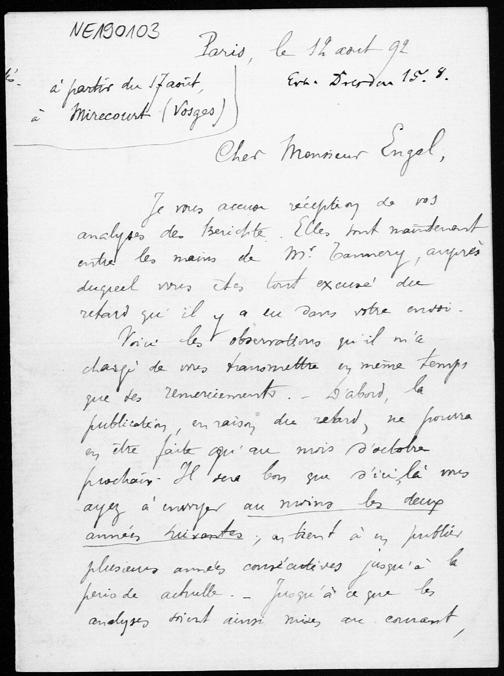 NE190103
Paris, le 12 aout 92
à partir du 17 août,
à Mirecourt (Vosges)
Dresden 15.8.
Cher Monsieur Engel,
Je vous accuse réception de vos
analyses des Berichte. Elles sont maintenant
entre les mains de Mr. Tannery, auprès
duquel vous êtes tout excusé du
retard qu'il y a eu dans votre envoi.
Voici les observations qu'il m'a
chargé de vous transmettre en même temps
que ses remerciements. - D'abord, la
publication, en raison du retard, ne pourra
en être faite qu'au mois d'octobre
prochain. Il sera bon que d'ici là vous
ayez à envoyer au moins les deux
années suivantes; on tient à en publier
plusieurs années consécutives jusqu'à la
periode actuelle. - Jusqu'à ce que les
analyses soient ainsi mises au courant,